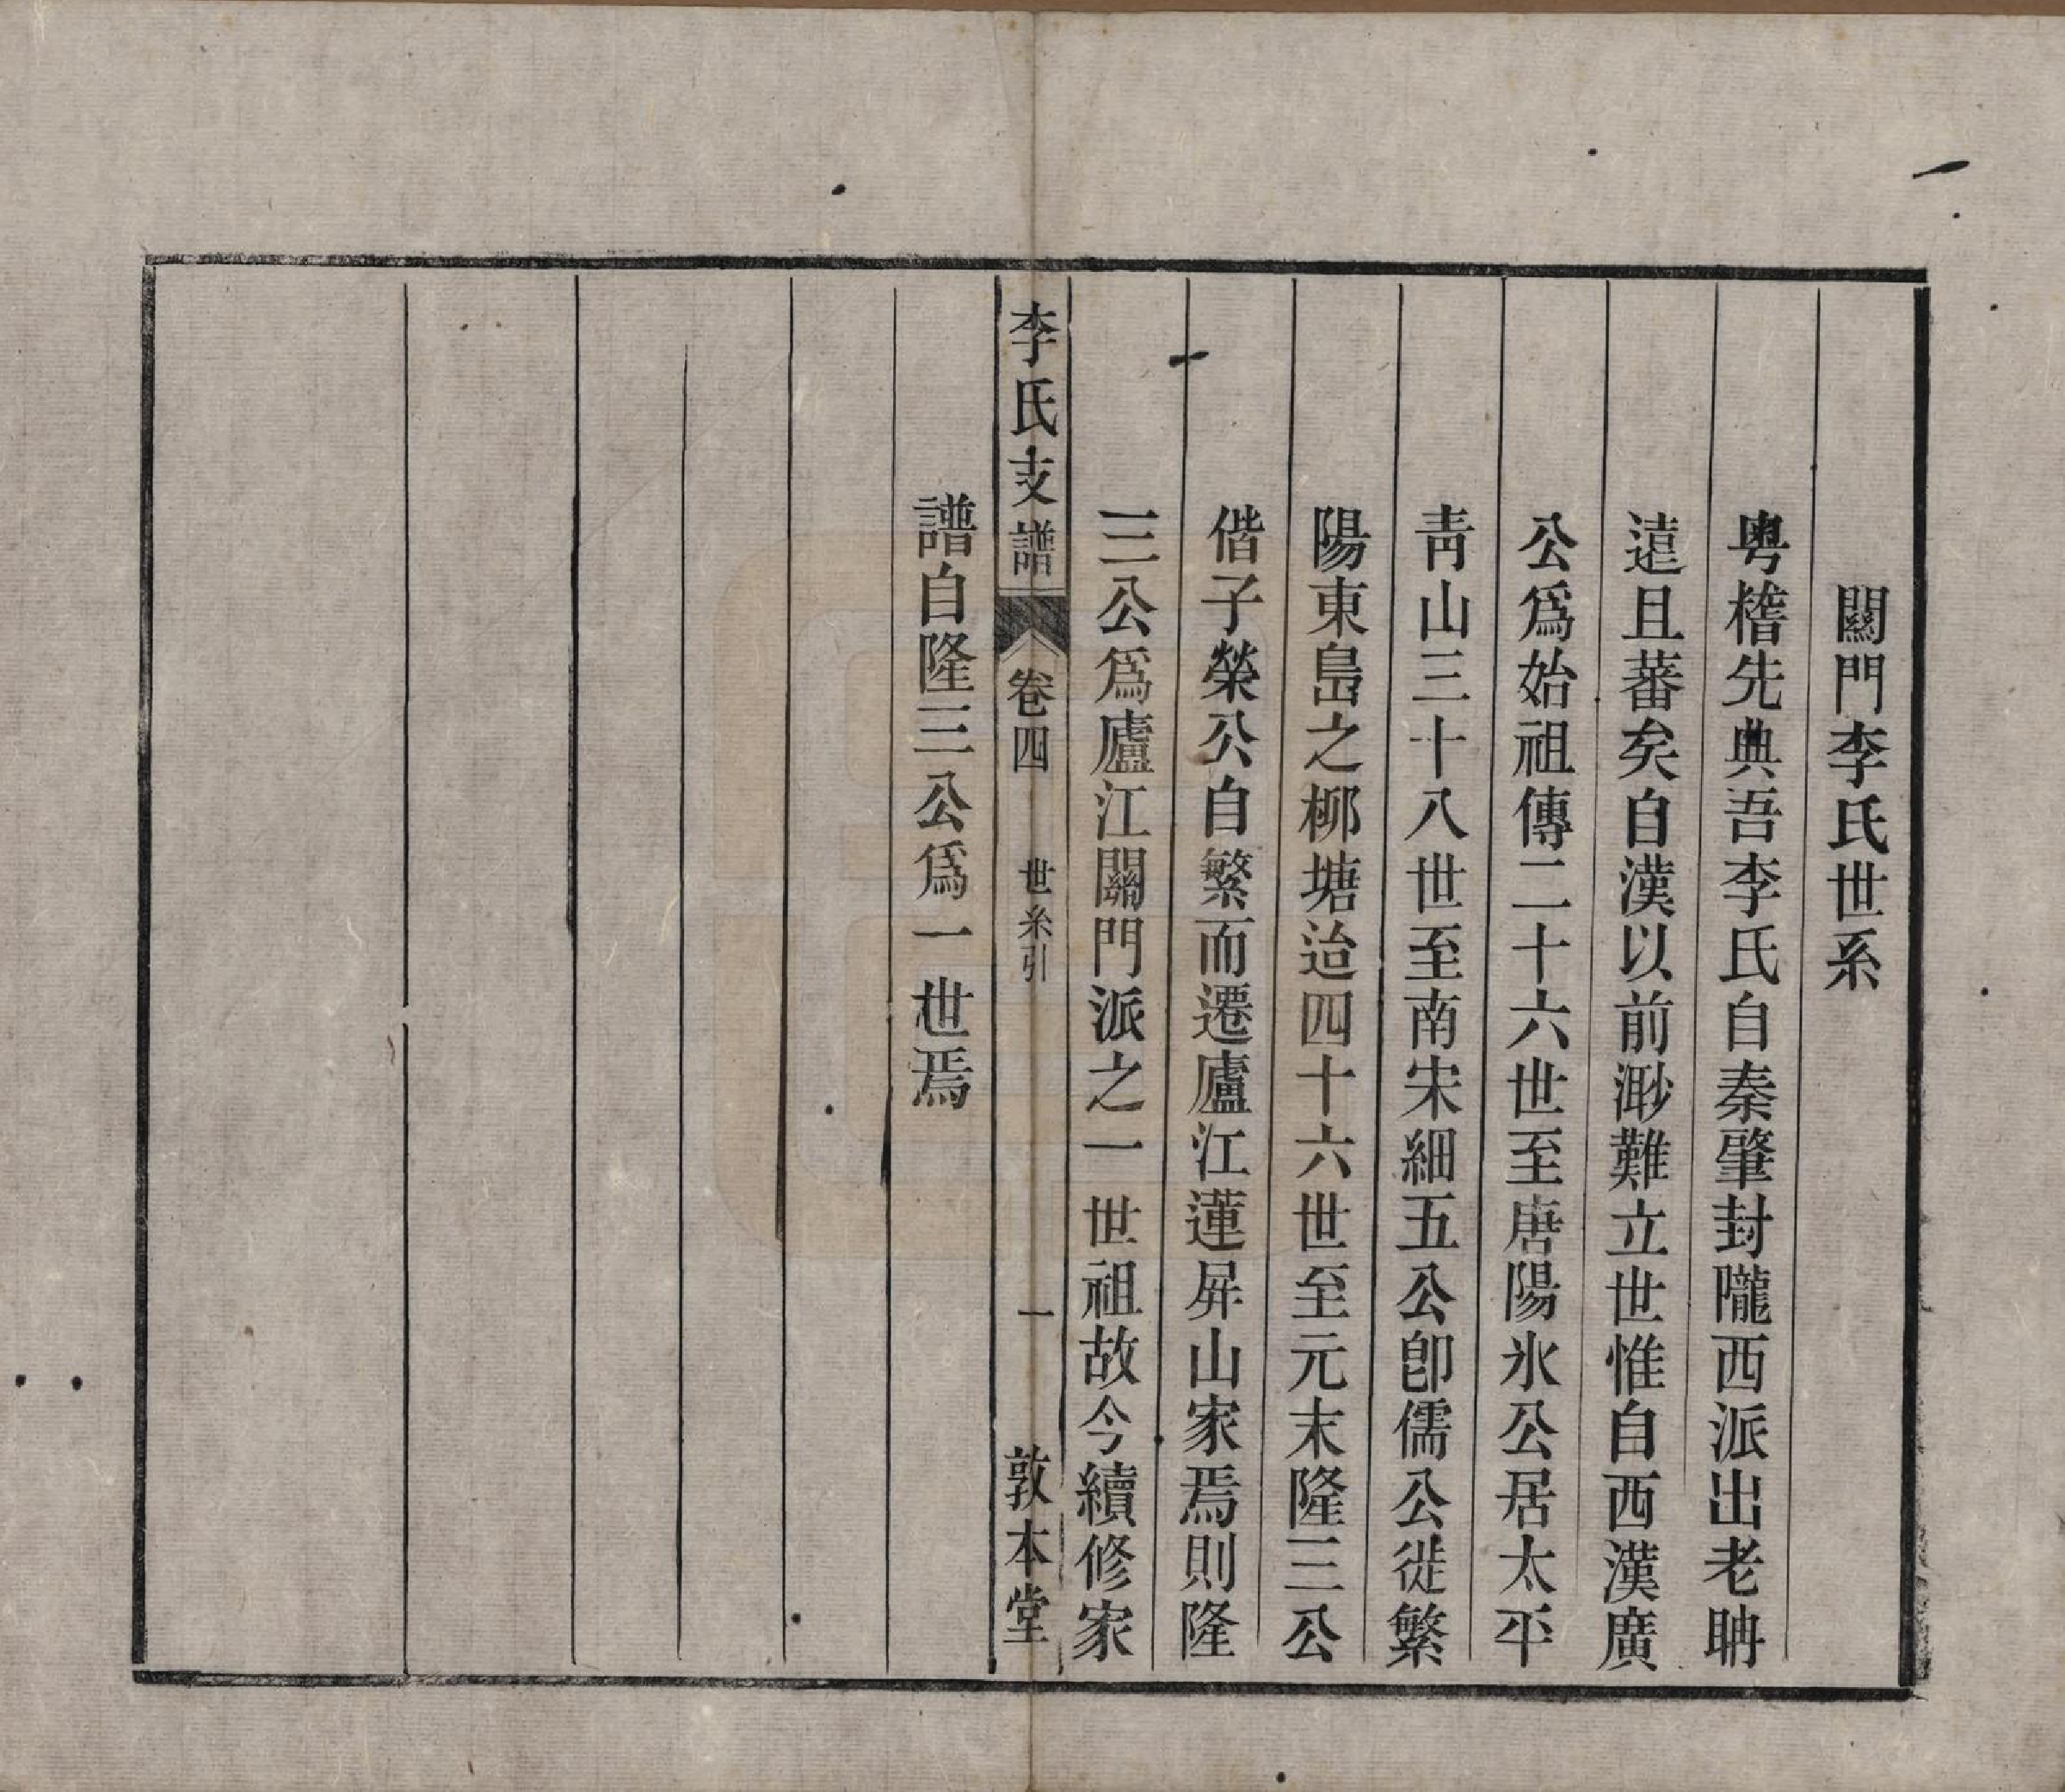 關門李氏世系
粤稽先典吾李氏自秦肇封隴西派出老聃
遠且蕃矣自漢以前渺難立世惟自西漢廣
公爲始祖傳二十六世至唐陽氷公居太平
靑山三十八世至南宋細五公卽儒公徙繁
陽東島之柳塘迨四十六世至元末隆三公
偕子榮公自繁而遷廬江蓮屛山家焉則隆
三公爲廬江關門派之一世祖故今續修家
李氏支譜 卷四 世系引 一 敦本堂
譜自隆三公爲一世焉